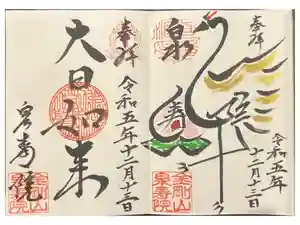 奉拝
泉
寿
院
令和五年
十二月十三日
金剛山
泉寿院
奉拝
令和五年十二月十三日
大日如来
泉寿院
金剛山
泉寿院